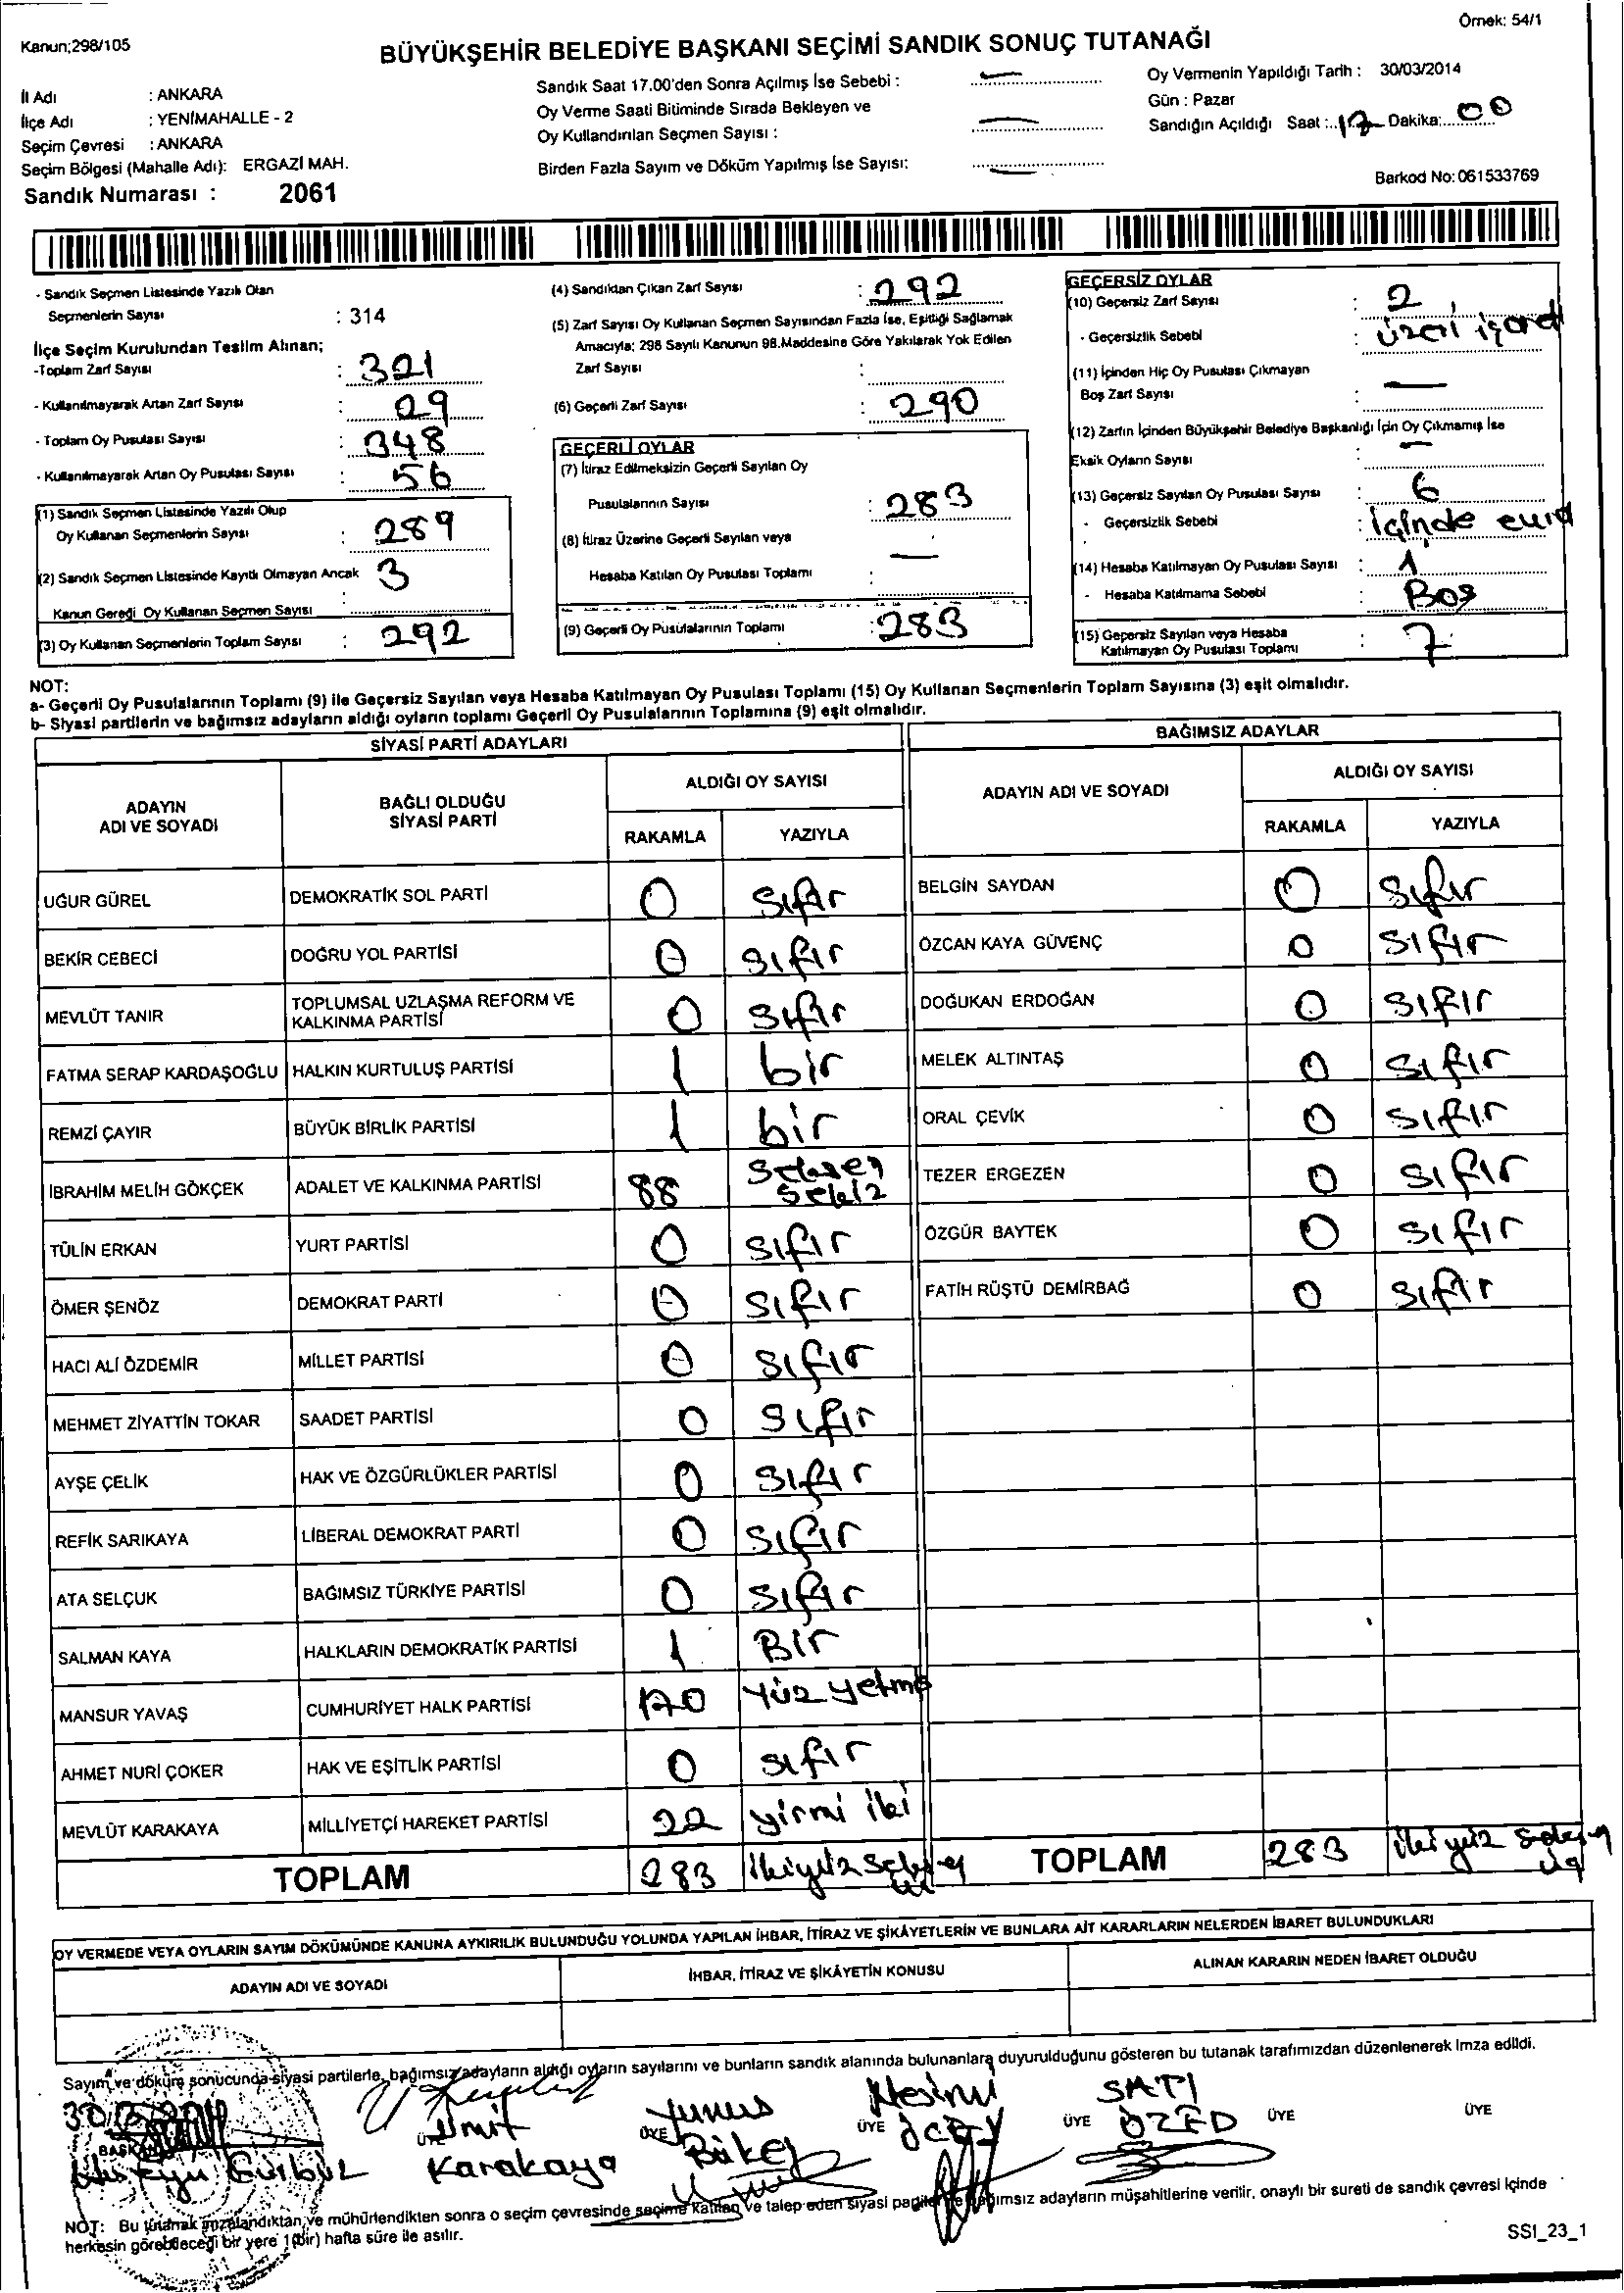 Örnek: 54/1
Kanun;298/105
BÜYÜKŞEHİR BELEDİYE BAŞKANI SEÇİMİ SANDIK SONUÇ TUTANAĞI
İl Adı : ANKARA
İlçe Adı : YENİMAHALLE - 2
Seçim Çevresi : ANKARA
Seçim Bölgesi (Mahalle Adı): ERGAZİ MAH.
Sandık Numarası : 2061
Sandık Saat 17.00'den Sonra Açılmış İse Sebebi : —
Oy Verme Saati Bitiminde Sırada Bekleyen ve
Oy Kullandırılan Seçmen Sayısı : —
Birden Fazla Sayım ve Döküm Yapılmış İse Sayısı: —
Oy Vermenin Yapıldığı Tarih : 30/03/2014
Gün : Pazar
Sandığın Açıldığı Saat :..17 Dakika:...00
Barkod No: 061533769
- Sandık Seçmen Listesinde Yazılı Olan
Seçmenlerin Sayısı : 314
İlçe Seçim Kurulundan Teslim Alınan;
-Toplam Zarf Sayısı : 321
- Kullanılmayarak Artan Zarf Sayısı : 29
- Toplam Oy Pusulası Sayısı : 348
- Kullanılmayarak Artan Oy Pusulası Sayısı : 56
(1) Sandık Seçmen Listesinde Yazılı Olup
Oy Kullanan Seçmenlerin Sayısı : 289
(2) Sandık Seçmen Listesinde Kayıtlı Olmayan Ancak 3
Kanun Gereği Oy Kullanan Seçmen Sayısı :
(3) Oy Kullanan Seçmenlerin Toplam Sayısı : 292
(4) Sandıktan Çıkan Zarf Sayısı : 292
(5) Zarf Sayısı Oy Kullanan Seçmen Sayısından Fazla İse, Eşitliği Sağlamak
Amacıyla; 298 Sayılı Kanunun 98.Maddesine Göre Yakılarak Yok Edilen
Zarf Sayısı :
(6) Geçerli Zarf Sayısı : 290
GEÇERLİ OYLAR
(7) İtiraz Edilmeksizin Geçerli Sayılan Oy
Pusulalarının Sayısı : 283
(8) İtiraz Üzerine Geçerli Sayılan veya
Hesaba Katılan Oy Pusulası Toplamı : —
(9) Geçerli Oy Pusulalarının Toplamı : 283
GEÇERSİZ OYLAR
(10) Geçersiz Zarf Sayısı : 2
- Geçersizlik Sebebi : üzeri işaret
(11) İçinden Hiç Oy Pusulası Çıkmayan
Boş Zarf Sayısı : —
(12) Zarfın İçinden Büyükşehir Belediye Başkanlığı İçin Oy Çıkmamış İse
Eksik Oyların Sayısı : —
(13) Geçersiz Sayılan Oy Pusulası Sayısı : 6
- Geçersizlik Sebebi : içinde
(14) Hesaba Katılmayan Oy Pusulası Sayısı : 1
- Hesaba Katılmama Sebebi : Boş
(15) Geçersiz Sayılan veya Hesaba
Katılmayan Oy Pusulası Toplamı : 7
NOT:
a- Geçerli Oy Pusulalarının Toplamı (9) ile Geçersiz Sayılan veya Hesaba Katılmayan Oy Pusulası Toplamı (15) Oy Kullanan Seçmenlerin Toplam Sayısına (3) eşit olmalıdır.
b- Siyasi partilerin ve bağımsız adayların aldığı oyların toplamı Geçerli Oy Pusulalarının Toplamına (9) eşit olmalıdır.
SİYASİ PARTİ ADAYLARI
ADAYIN
ADI VE SOYADI
BAĞLI OLDUĞU
SİYASİ PARTİ
ALDIĞI OY SAYISI
RAKAMLA YAZIYLA
UĞUR GÜREL DEMOKRATİK SOL PARTİ 0 sıfır
BEKİR CEBECİ DOĞRU YOL PARTİSİ 0 sıfır
MEVLÜT TANIR TOPLUMSAL UZLAŞMA REFORM VE
KALKINMA PARTİSİ 0 sıfır
FATMA SERAP KARDAŞOĞLU HALKIN KURTULUŞ PARTİSİ 1 bir
REMZİ ÇAYIR BÜYÜK BİRLİK PARTİSİ 1 bir
İBRAHİM MELİH GÖKÇEK ADALET VE KALKINMA PARTİSİ 88 seksen
sekiz
TÜLİN ERKAN YURT PARTİSİ 0 sıfır
ÖMER ŞENÖZ DEMOKRAT PARTİ 0 sıfır
HACI ALİ ÖZDEMİR MİLLET PARTİSİ 0 sıfır
MEHMET ZİYATTİN TOKAR SAADET PARTİSİ 0 sıfır
AYŞE ÇELİK HAK VE ÖZGÜRLÜKLER PARTİSİ 0 sıfır
REFİK SARIKAYA LİBERAL DEMOKRAT PARTİ 0 sıfır
ATA SELÇUK BAĞIMSIZ TÜRKİYE PARTİSİ 0 sıfır
SALMAN KAYA HALKLARIN DEMOKRATİK PARTİSİ 1 Bir
MANSUR YAVAŞ CUMHURİYET HALK PARTİSİ 170 Yüz yetmiş
AHMET NURİ ÇOKER HAK VE EŞİTLİK PARTİSİ 0 sıfır
MEVLÜT KARAKAYA MİLLİYETÇİ HAREKET PARTİSİ 22 yirmi iki
TOPLAM 283 ikiyüz seksen
üç
BAĞIMSIZ ADAYLAR
ADAYIN ADI VE SOYADI
ALDIĞI OY SAYISI
RAKAMLA YAZIYLA
BELGİN SAYDAN 0 sıfır
ÖZCAN KAYA GÜVENÇ 0 sıfır
DOĞUKAN ERDOĞAN 0 sıfır
MELEK ALTINTAŞ 0 sıfır
ORAL ÇEVİK 0 sıfır
TEZER ERGEZEN 0 sıfır
ÖZGÜR BAYTEK 0 sıfır
FATİH RÜŞTÜ DEMİRBAĞ 0 sıfır
TOPLAM 283 ikiyüz seksen
üç
OY VERMEDE VEYA OYLARIN SAYIM DÖKÜMÜNDE KANUNA AYKIRILIK BULUNDUĞU YOLUNDA YAPILAN İHBAR, İTİRAZ VE ŞİKÂYETLERİN VE BUNLARA AİT KARARLARIN NELERDEN İBARET BULUNDUKLARI
ADAYIN ADI VE SOYADI İHBAR, İTİRAZ VE ŞİKÂYETİN KONUSU ALINAN KARARIN NEDEN İBARET OLDUĞU
Sayım ve döküm sonucunda siyasi partilerle, bağımsız adayların aldığı oyların sayılarını ve bunların sandık alanında bulunanlara duyurulduğunu gösteren bu tutanak tarafımızdan düzenlenerek imza edildi.
BAŞKAN ÜYE ÜYE ÜYE ÜYE ÜYE ÜYE
Ümit
Karakaya
Yunus
SATI
NOT: Bu tutanak imzalandıktan ve mühürlendikten sonra o seçim çevresinde seçime katılan ve talep eden siyasi partiler ve bağımsız adayların müşahitlerine verilir, onaylı bir sureti de sandık çevresi içinde
herkesin görebileceği bir yere 1(bir) hafta süre ile asılır.
SSI_23_1